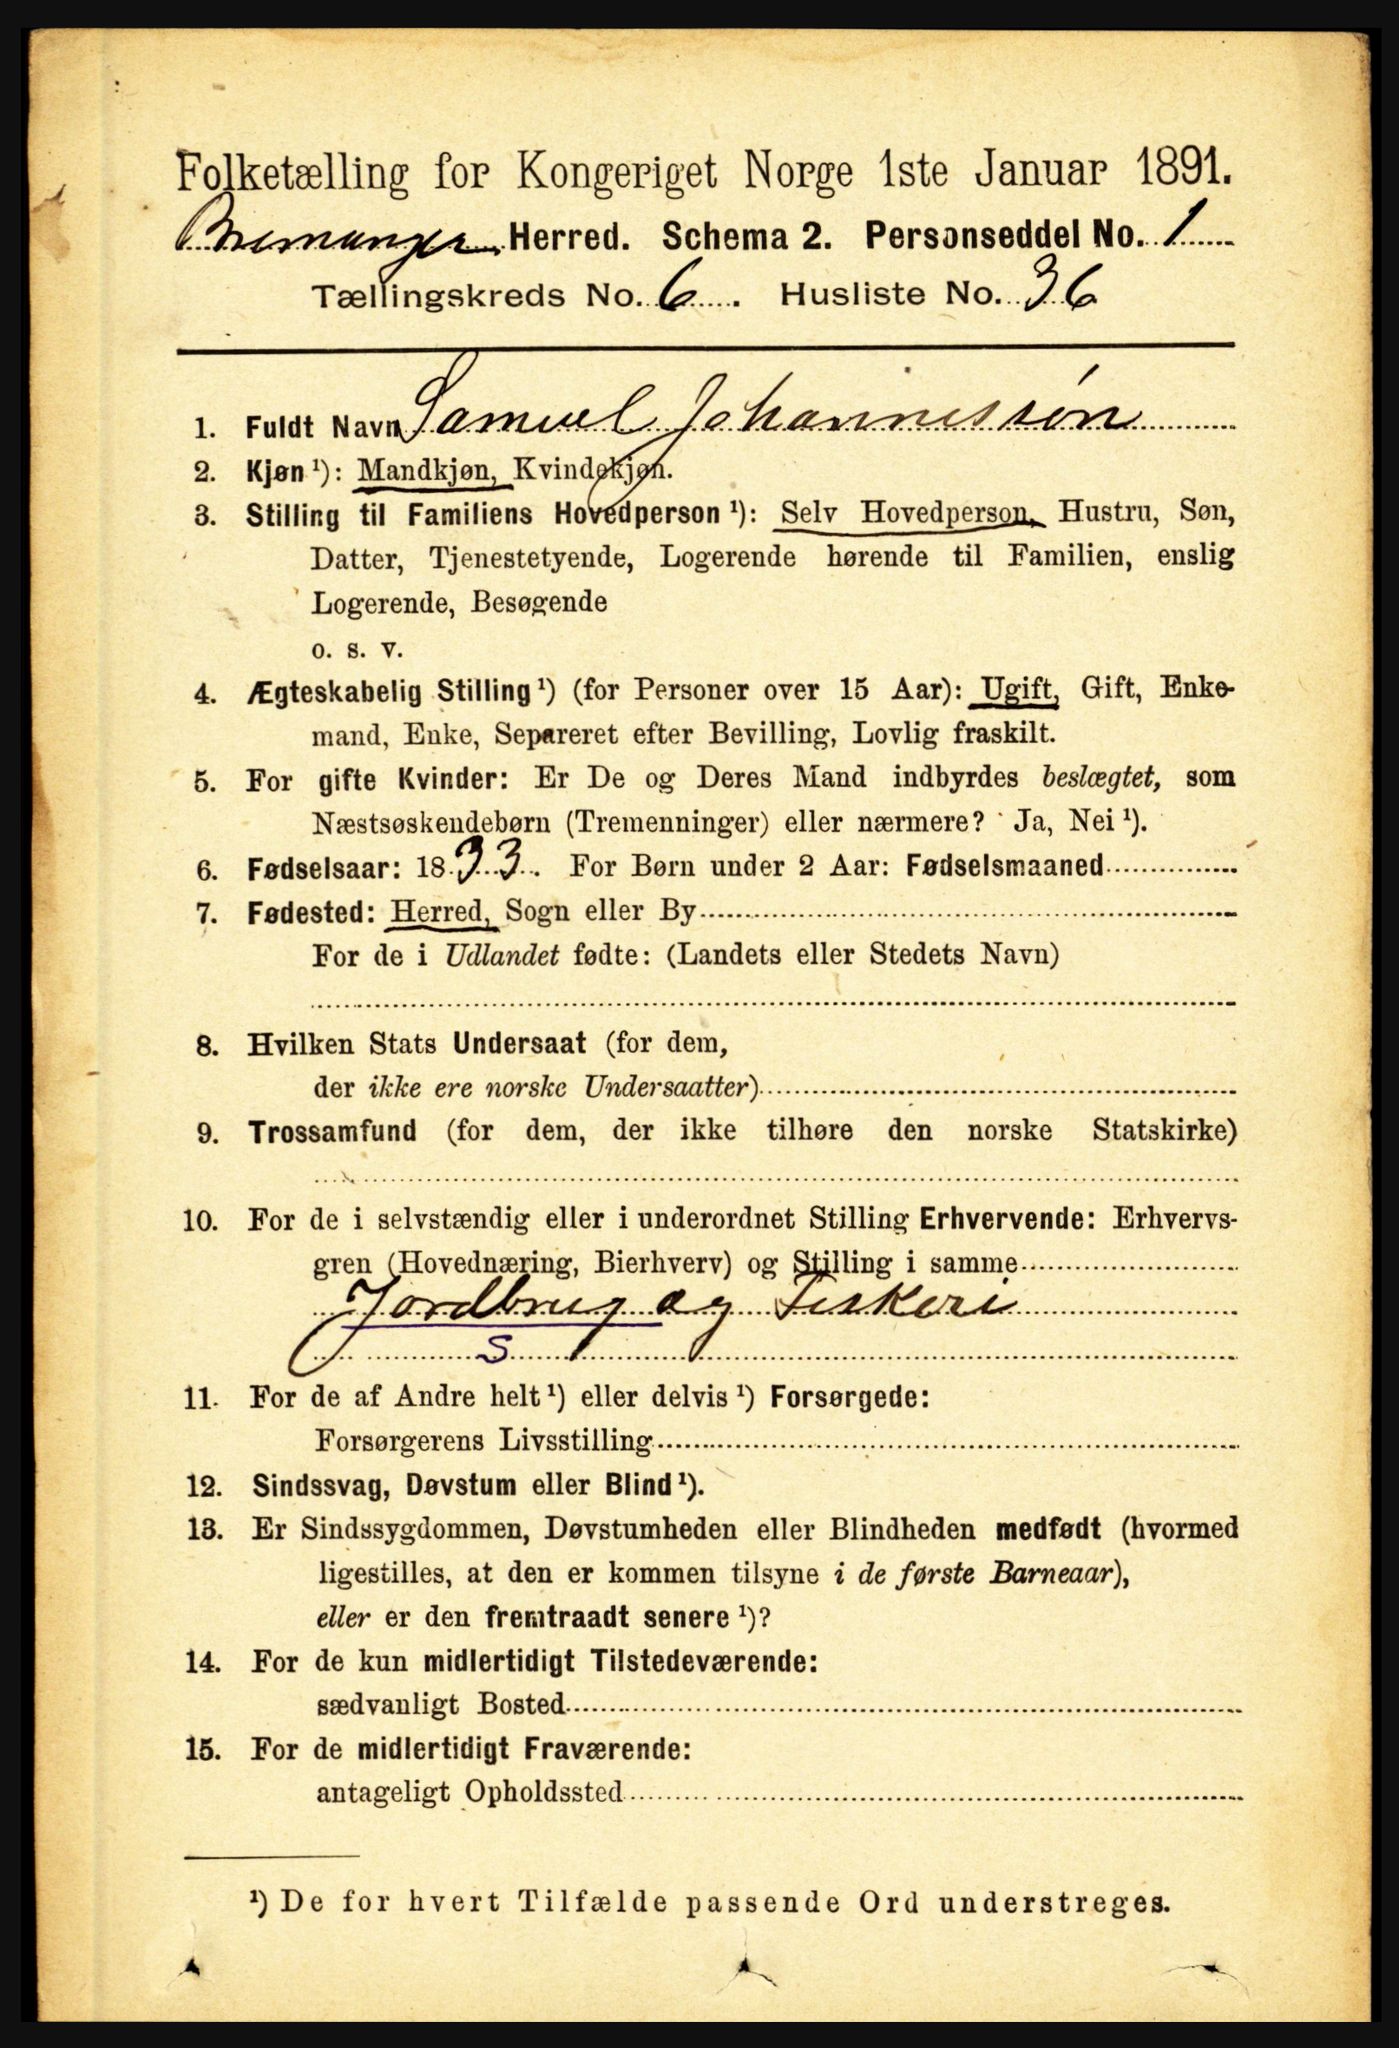 Folketælling for Kongeriget Norge 1ste Januar 1891.
Bremanger Herred. Schema 2. Personseddel No. 1
Tællingskreds No. 6. Husliste No. 36
1. Fuldt Navn Samuel Johannessøn
2. Kjøn¹): Mandkjøn, Kvindekjøn.
3. Stilling til Familiens Hovedperson¹): Selv Hovedperson, Hustru, Søn,
Datter, Tjenestetyende, Logerende hørende til Familien, enslig
Logerende, Besøgende
o. s. v.
4. Ægteskabelig Stilling¹) (for Personer over 15 Aar): Ugift, Gift, Enke-
mand, Enke, Separeret efter Bevilling, Lovlig fraskilt.
5. For gifte Kvinder: Er De og Deres Mand indbyrdes beslægtet, som
Næstsøskendebørn (Tremenninger) eller nærmere? Ja, Nei¹).
6. Fødselsaar: 1833. For Børn under 2 Aar: Fødselsmaaned
7. Fødested: Herred, Sogn eller By
For de i Udlandet fødte: (Landets eller Stedets Navn)
8. Hvilken Stats Undersaat (for dem,
der ikke ere norske Undersaatter)
9. Trossamfund (for dem, der ikke tilhøre den norske Statskirke)
10. For de i selvstændig eller i underordnet Stilling Erhvervende: Erhvervs-
gren (Hovednæring, Bierhverv) og Stilling i samme
Jordbrug og Fiskeri
S
11. For de af Andre helt¹) eller delvis¹) Forsørgede:
Forsørgerens Livsstilling
12. Sindssvag, Døvstum eller Blind¹).
13. Er Sindssygdommen, Døvstumheden eller Blindheden medfødt (hvormed
ligestilles, at den er kommen tilsyne i de første Barneaar),
eller er den fremtraadt senere¹)?
14. For de kun midlertidigt Tilstedeværende:
sædvanligt Bosted
15. For de midlertidigt Fraværende:
antageligt Opholdssted
¹) De for hvert Tilfælde passende Ord understreges.